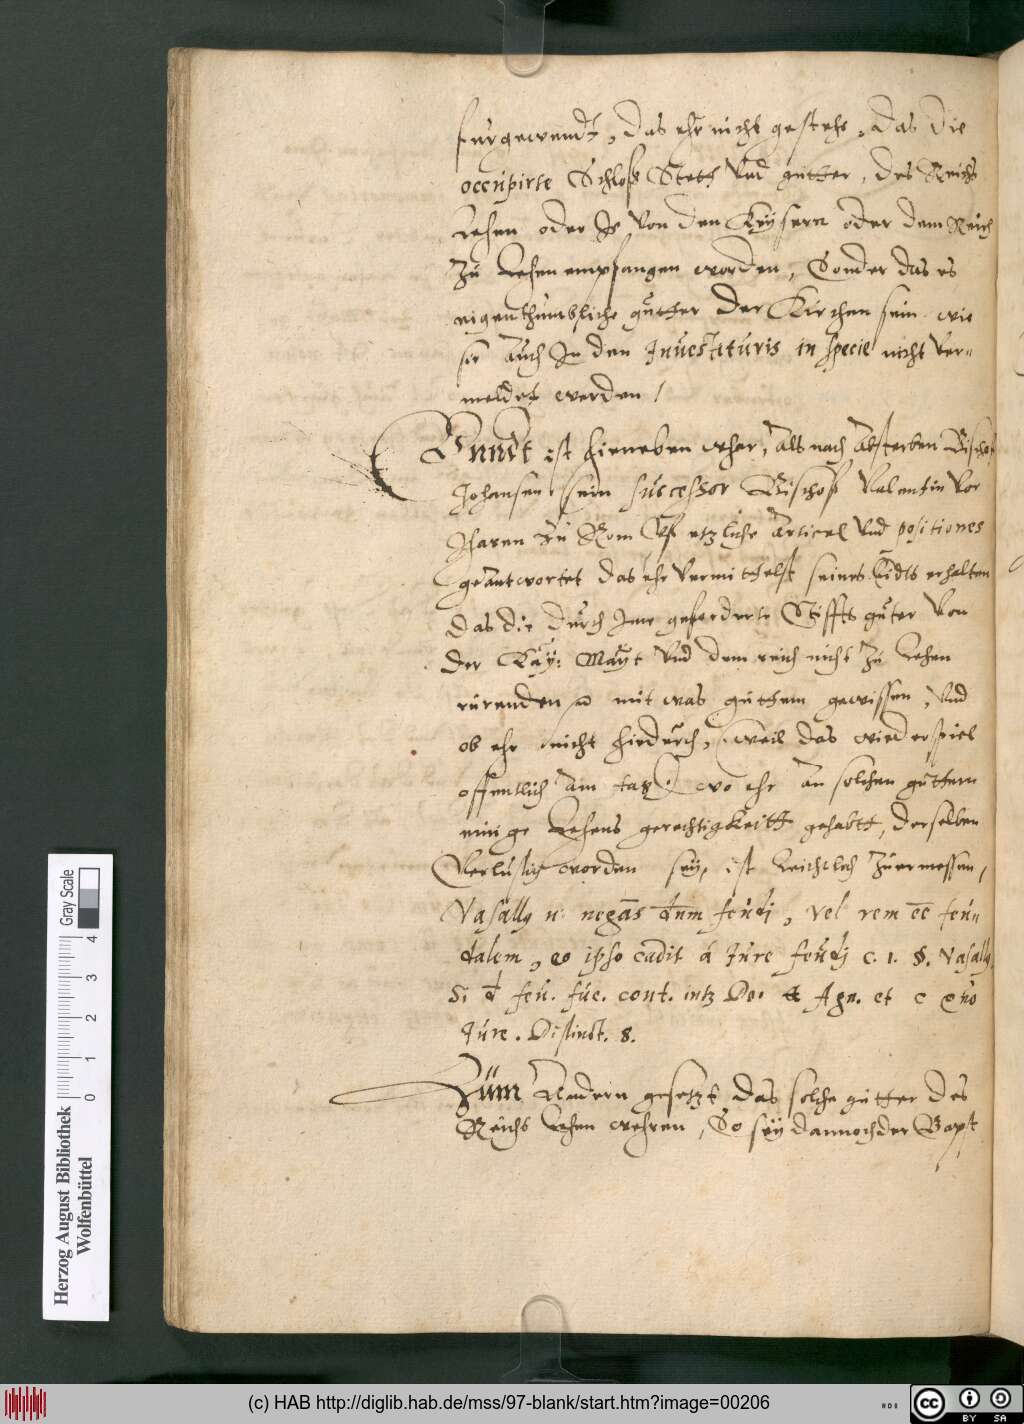 furgewendt, das ehr nicht gestehe, das die
occupirte Schloss Stett Vnd gutter, des Reichs
Lehen oder Je Von den Keysern oder dem Reich
zu Lehen empfangen worden, Sonder das es
eigenthumbliche gutter der Kirchen sein wie
sie auch In den Inuestituris in specie nicht ver=
meldet werden /
Vnndt ist hieneben whar, als nach absterben Bischof
Johansen, sein successor Bischof Valentin Vor
Jharen zu Rom Vf etzliche articel Vnd positiones
geantwortet das ehr Vermittelst seines Eidts erhalten
das die durch Jme gefoderte Stiffts guter Von
der Kay: Mayt Vnd dem reich nicht zu Lehen
rurenden mit was guttem gewissen, Vnd
ob ehr nicht hiedurch, (weil das wiederspiel
offentlich am tag) wo ehr an solchen guttern
einige Lehens gerechtigkeitt gehabtt, derselben
Verlustig worden sey, ist leichtlich zuermessen,
Vasally n: negas dnm feudj, vel rem ee feu=
dalem, eo ipso cadit a Jure feudj c. 1. §. Vasally
Si d feu. fue. cont. intz Do: & Agn. et c quo
Jure. Distinct. 8.
Zum Andern gesetzt das solche gutter des
Reichs Lehen wehren, So sey dannoch der Bapst
Herzog August Bibliothek
Wolfenbüttel
Gray Scale
0 1 2 3 4
(c) HAB http://diglib.hab.de/mss/97-blank/start.htm?image=00206
cc BY SA